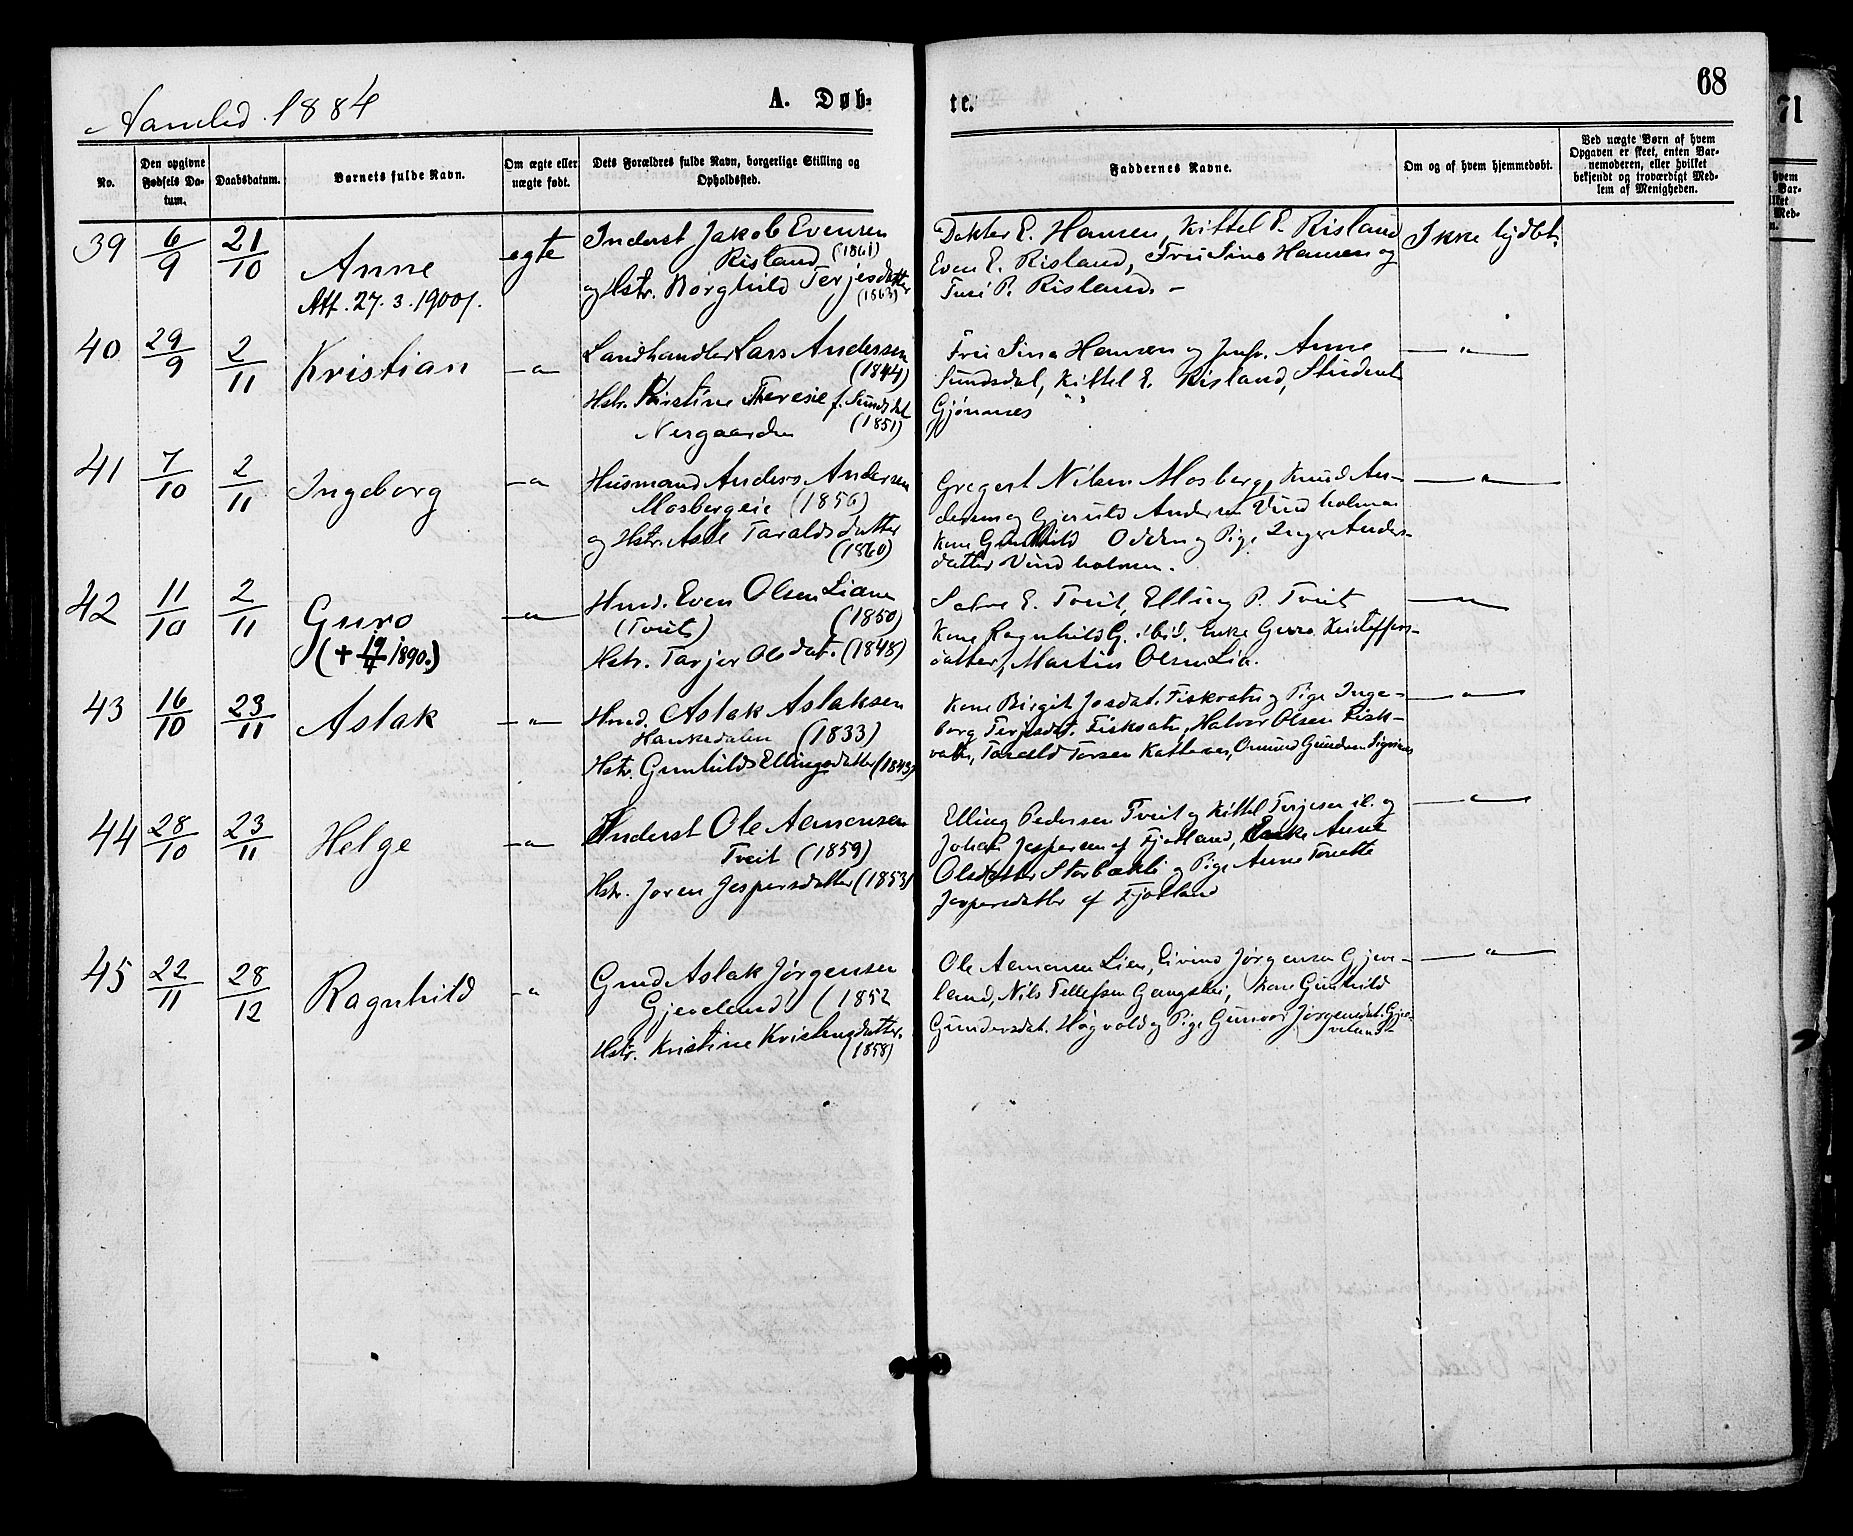 Aamlid. 1884
A. Døb-
te.
68
71
No.
Den opgivne Fødsels Da-tum.
Daabsdatum.
Barnets fulde Navn.
Om ægte eller uægte født.
Dets Forældres fulde Navn, borgerlige Stilling og Opholdssted.
Faddernes Navne.
Om og af hvem hjemmedøbt.
Ved uægte Børn af hvem Opgaven er skeet, enten Bar-nemoderen, eller hvilket bekjendt og troværdigt Med-lem af Menigheden.
39 6/9 21/10 Anne egte
Att. 27.3.1900
Inderst Jakob Evensen
Risland (1861)
og Hstr. Borghild Terjesdatter
(1863)
Dokter E. Hansen, Kittel E. Risland
Even E. Risland, Fru Sina Hansen og
P. Risland. -
Ikke hjdbt.
40 29/9 2/11 Kristian -"-
Landhandler Lars Andersen
(1844)
Hstr. Kirstine Theresie f. Sundsdal
Nergaarden (1851)
Fru Sina Hansen og Jmfr. Anne
Sundsdal, Kittel E. Risland, Student
Gjønnes
-"-
41 7/10 2/11 Ingeborg -"-
Husmand Anders Andersen
Mosbergeie (1856)
og Hstr. Aase Taraldsdatter
(1860)
Gregert Nilsen Mosberg, Knud An-
dersen og Andersen Vindholmen
Kone Gunhild Odden og Pige Inger Anders-
datter Vindholmen.
-"-
42 11/10 2/11 Guro -"-
(+ 19/4 1890.)
Hmd. Even Olsen Liane
(Tveit) (1850)
Hstr. Tarjer Olsdat. (1848)
Salve E. Tveit, Elling P. Tveit
Kone Ragnhild G. ibid. Enke Guro Kristoffers-
datter, Martin Olsen Lia.
-"-
43 16/10 23/11 Aslak -"-
Hmd. Aslak Aslaksen
Hankedalen (1833)
Hstr. Gunhild Ellingsdatter (1843)
Kone Birgit Josdat. Fiskvatn og Pige Inge-
borg Terjesdat. Fiskvatn, Halvor Olsen Fisk-
vatn, Tarald Torsen Katteraas, Omund Gundersen
-"-
44 28/10 23/11 Helge -"-
Inderst Ole Aamonsen
Tveit (1859)
Hstr. Joren Jespersdatter (1853)
Elling Pedersen Tveit og Kittel Terjesen ib. og
Johan Jespersen af Fjotland, Enke Anne
Olsdatter Storbækli og Pige Anne Tonette
Jespersdatter af Fjotland
-"-
45 22/11 28/12 Ragnhild -"-
Gmd. Aslak Jørgensen
Gjeveland (1852
Hstr. Kristine Kristensdatter.
(1858)
Ole Aamonsen Lien, Eivind Jørgensen Gjeve-
land, Nils Tellefsen Gangsei, Kone Gunhild
Gundersdat. Høgvold og Pige Gunvor Jørgensdat. Gje-
veland
-"-